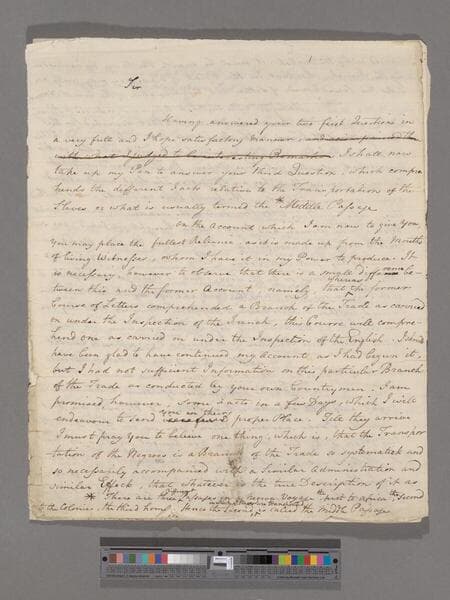 1
Sir
Having answered your two first Questions in
a very full and I hope satisfactory Manner, I shall now
take up my Pen to answer your third Question, which compre-
hends the different Facts relative to the Transportation of the
Slaves or what is usually termed the * Middle Passage
On the Account, which I am now to give you
you may place the fullest Reliance, as it is made up from the Mouths
of living Witnesses, whom I have it in my Power to produce. It
is necessary, however to observe that there is a small difference be-
tween this and the former Account, namely, that whereas the former
Course of Letters comprehended a Branch of the Trade as carried
on under the Inspection of the French, this Course will compre-
hend one as carried on under the Inspection of the English. I should
have been glad to have continued my Account as I had begun it,
but I had not sufficient Information on this particular Branch
of the Trade as conducted by your own Countrymen. I am
promised, however, some Facts in a few Days, which I will
endeavour to send you in their proper Place. Till they arrive
I must pray you to believe one thing, which is, that the Transpor
tation of the Negroes is a Branch of the Trade so systematick and
so necessarily accompanied with a similar Administration and
similar Effects, that whatever is the true Description of it as
* There are three Passages in a Voyage the first to Africa the second
to the Colonies, the third home. Hence the second is called the Middle Passage